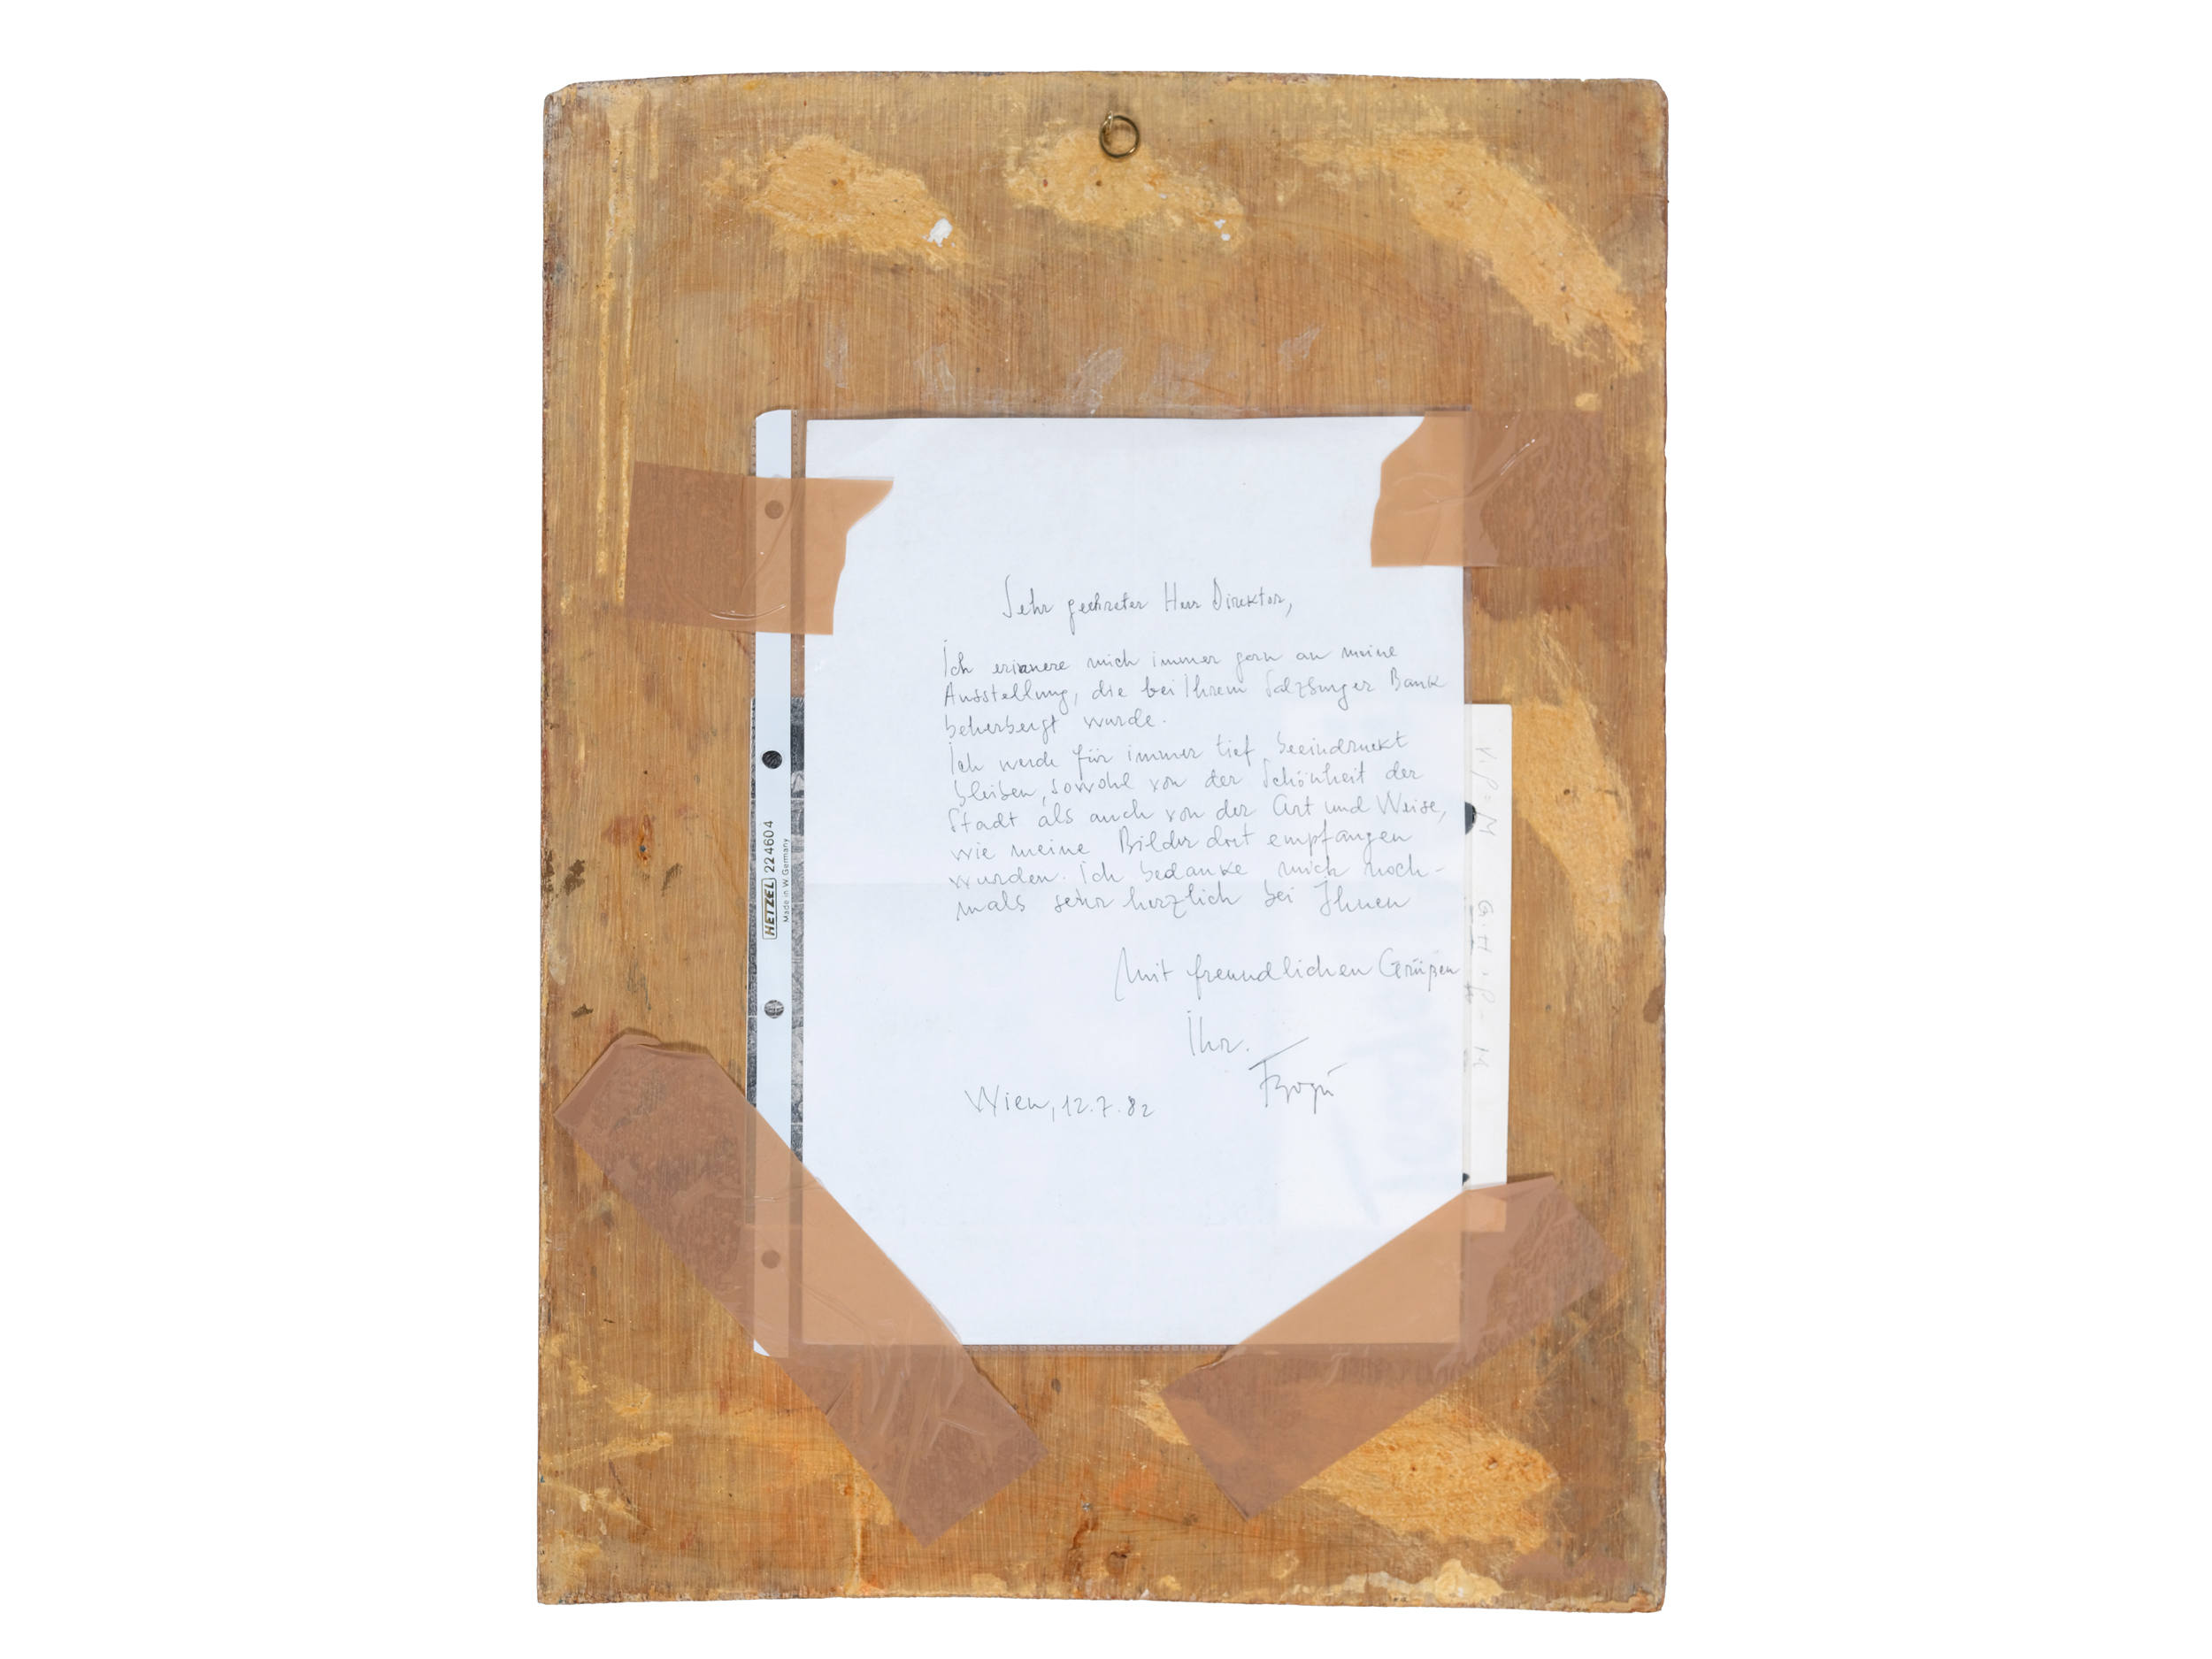 Sehr geehreter Herr Direktor,
Ich erinnere mich immer gern an meine
Ausstellung, die bei Ihrem Salzburger Bank
beherbergt wurde.
Ich werde für immer tief beeindruckt
bleiben, sowohl von der Schönheit der
Stadt als auch von der Art und Weise,
wie meine Bilder dort empfangen
wurden. Ich bedanke mich noch-
mals sehr herzlich bei Ihnen
Mit freundlichen Grüßen
Ihr.
Wien, 12.7.82
HETZEL 224604
Made in W. Germany